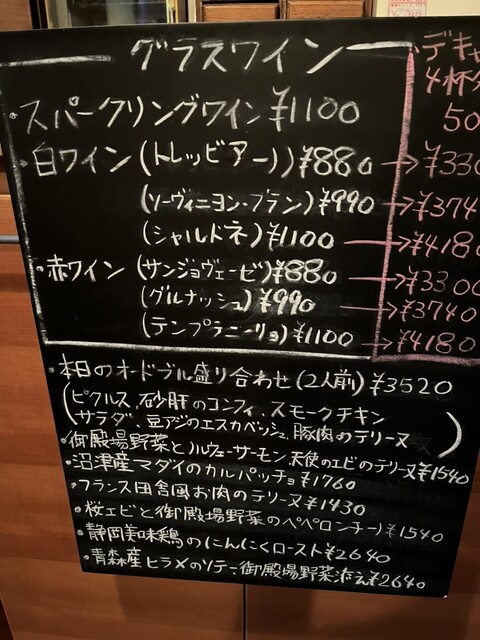 グラスワイン
デキャ
4杯分
50
・スパークリングワイン ¥1100
・白ワイン (トレッビアーノ) ¥880 → ¥330
(ソーヴィニヨン・ブラン) ¥990 → ¥374
(シャルドネ) ¥1100 → ¥4180
・赤ワイン (サンジョヴェーゼ) ¥880 → ¥3300
(グルナッシュ) ¥990 → ¥3740
(テンプラニーリョ) ¥1100 → ¥4180
・本日のオードブル盛り合わせ (2人前) ¥3520
(ピクルス、砂肝のコンフィ、スモークチキン
サラダ、豆アジのエスカベッシュ、豚肉のテリーヌ)
・御殿場野菜とノルウェーサーモン、天使のエビのテリーヌ ¥1540
・沼津産マダイのカルパッチョ ¥1760
・フランス田舎風お肉のテリーヌ ¥1430
・桜エビと御殿場野菜のペペロンチーノ ¥1540
・静岡美味鶏のにんにくロースト ¥2640
・青森産ヒラメのソテー、御殿場野菜添え ¥2640